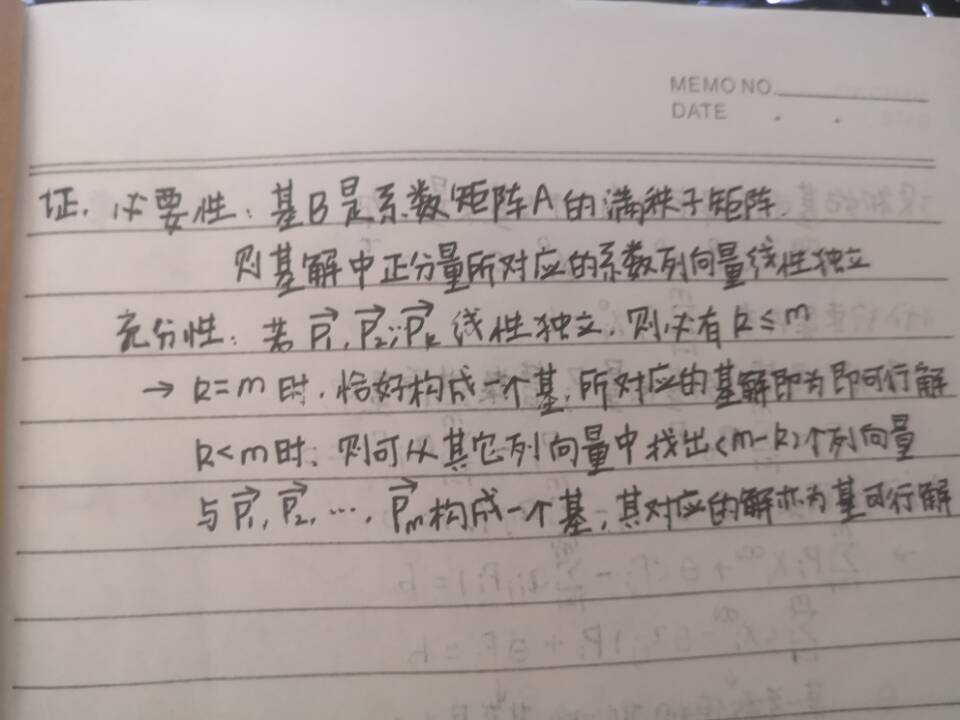 MEMO NO.
DATE . .
证. 必要性: 基B是系数矩阵A的满秩子矩阵.
则基解中正分量所对应的系数列向量线性独立
充分性: 若 P₁, P₂, ⋯, Pk 线性独立, 则必有 k ≤ m
→ k=m 时, 恰好构成一个基, 所对应的基解即为即可行解
k<m时, 则可从其它列向量中找出(m-k)个列向量
与 P₁, P₂, ⋯, Pm 构成一个基, 其对应的解亦为基可行解